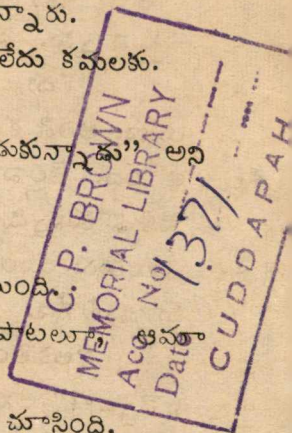 న్నారు.
లేదు కమలకు.
డుకున్నాడు” అని
ంది.
పాటలూ ఆమా
చూసింది.
C. P. BROWN
MEMORIAL LIBRARY
Acc. No 1371
Date
CUDDAPAH